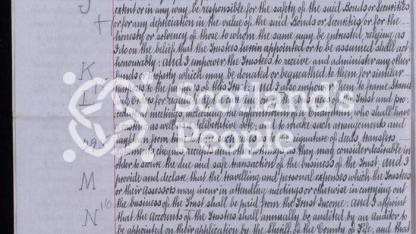 J extent or in any way, be responsible for the safety of the said Bonds or Securities
H or for any depreciation in the value of the said Bonds or Securities or for the
honesty or solvency of those to whom the same may be entrusted, relying as
I do on the belief that the Trustees herein appointed or to be assumed shall act
K honourably: and I empower the Trustees to receive and administer any other
funds or property which may be donated or bequeathed to them for similar
L to the of this and I also them to frame
for the and
meetings, including the appointment of a Chairman, who shall have
as well as a Vote, and to make such arrangements and
from time to time with to the signature of deeds, transfers
, cheques, receipts and other as they may consider desirable in
M order to secure the due and safe transaction of the business of the Trust, and I
provide and declare that the travelling and personal expenses which the Trustees
or their Assessors may incur in attending meetings or otherwise in carrying out
N 16 the business of the Trust shall be paid from the Trust Income: and I appoint
that the accounts of the Trustees shall annually be audited by an Auditor to
be appointed on their application by the Sheriff of the County of Fife, and that
Scotland's
People